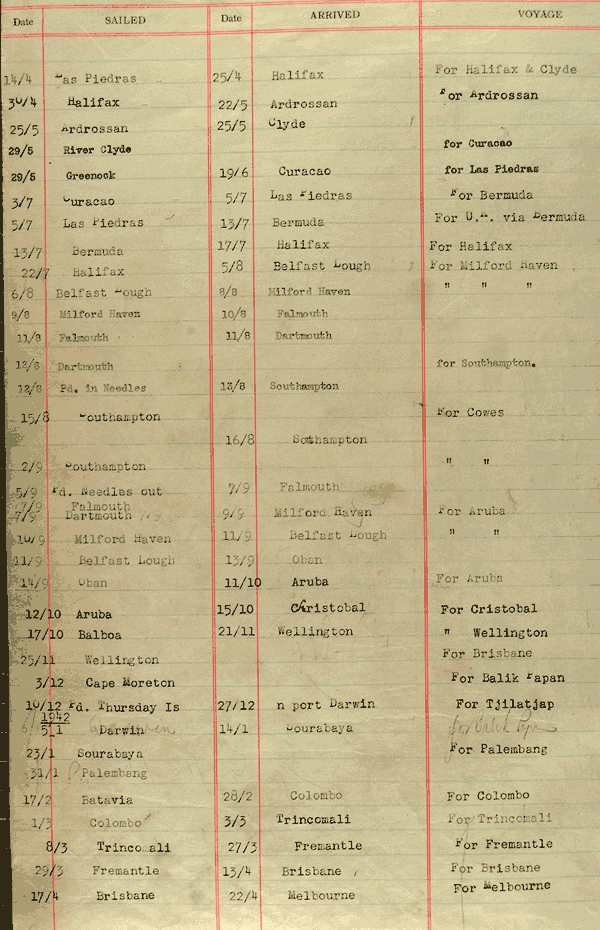 Date SAILED Date ARRIVED VOYAGE
14/4 Las Piedras 25/4 Halifax For Halifax & Clyde
30/4 Halifax 22/5 Ardrossan For Ardrossan
25/5 Ardrossan 25/5 Clyde
29/5 River Clyde for Curacao
29/5 Greenock 19/6 Curacao for Las Piedras
3/7 Curacao 5/7 Las Piedras For Bermuda
5/7 Las Piedras 13/7 Bermuda For U.K. via Bermuda
13/7 Bermuda 17/7 Halifax For Halifax
22/7 Halifax 5/8 Belfast Lough For Milford Haven
6/8 Belfast Lough 8/8 Milford Haven " " "
9/8 Milford Haven 10/8 Falmouth
11/8 Falmouth 11/8 Dartmouth
12/8 Dartmouth for Southampton.
12/8 Pd. in Needles 13/8 Southampton
15/8 Southampton For Cowes
16/8 Sothampton
2/9 Southampton " "
5/9 Pd. Needles out 7/9 Falmouth
7/9 Falmouth
7/9 Dartmouth 9/9 Milford Haven For Aruba
10/9 Milford Haven 11/9 Belfast Lough " "
11/9 Belfast Lough 13/9 Oban
14/9 Oban 11/10 Aruba For Aruba
12/10 Aruba 15/10 Christobal For Cristobal
17/10 Balboa 21/11 Wellington " Wellington
25/11 Wellington For Brisbane
3/12 Cape Moreton For Balik Papan
10/12 Pd. Thursday Is 27/12 n port Darwin For Tjilatjap
1942
5/1 Darwin 14/1 Sourabaya for Balik Papan
23/1 Sourabaya For Palembang
31/1 Palembang
17/2 Batavia 28/2 Colombo For Colombo
1/3 Colombo 3/3 Trincomali For Trincomali
8/3 Trincomali 27/3 Fremantle For Fremantle
29/3 Fremantle 13/4 Brisbane For Brisbane
17/4 Brisbane 22/4 Melbourne For Melbourne